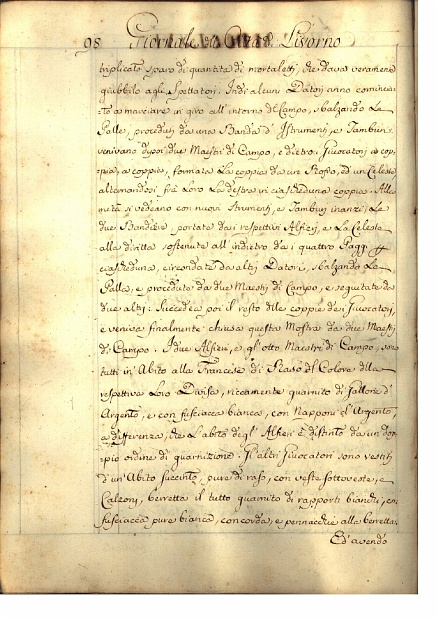 98 Giornale di Città di Livorno
triplicato sparo di quantità di mortaletti, che dava veramente
giubbilo agli Spettatori. Indi alcuni Datori anno cominciato
a marciare in giro all'intorno del Campo, sbalzando la
Palla, preceduti da una Banda d'Istrumenti, e Tamburi,
venivano dipoi due Maestri di Campo, e dietro i Giuocatori a coppia,
a coppia, formata la coppia da un Rosso, ed un Celeste
alternandosi frà loro la destra in ciascheduna coppia. Alla
metà si vedeano con nuovi Strumenti, e Tamburi inanzi, le
due Bandiere, portate da i respettivi Alfieri, e la Celeste
alla diritta sostenute all'indietro da i quattro Paggi
ciascheduna, circondate da altri Datori, sbalzando la
Palla, e precedute da due Maestri di Campo, e seguitate da
due altri: Succedea poi il resto delle coppie de i Giuocatori,
e veniva finalmente chiusa questa Mostra da due Maestri
di Campo. I due Alfieri, e gl'otto Maestri di Campo, sono
tutti in Abito alla Francese di Raso del Colore della
respettiva loro Divisa, riccamente guarnito di Gallone d'
Argento, e con fusciacca bianca, con Napponi d'Argento,
a differenza, che l'abito degl'Alfieri è distinto da un doppio
ordine di guarnizione. Gl'altri Giuocatori sono vestiti
d'un'Abito succinto, pure di raso, con veste sottoveste, e
Calzoni, berretta il tutto guarnito di rapporti bianchi, con
fusciacca pure bianca, con corda, e pennacchie alla berretta.
Ed avendo